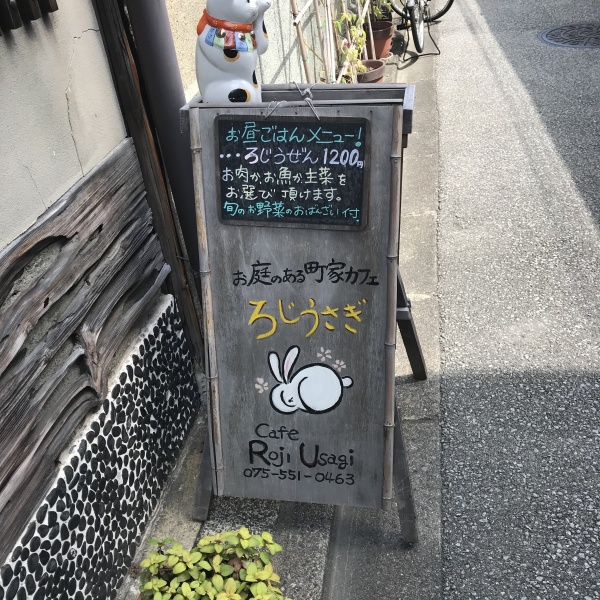 お昼ごはんメニュー!
・・・ろじうぜん 1200円
お肉か、お魚か、主菜を
お選び頂けます。
旬のお野菜のおばんざい付
お庭のある町家カフェ
ろじうさぎ
Cafe
Roji Usagi
075-551-0463